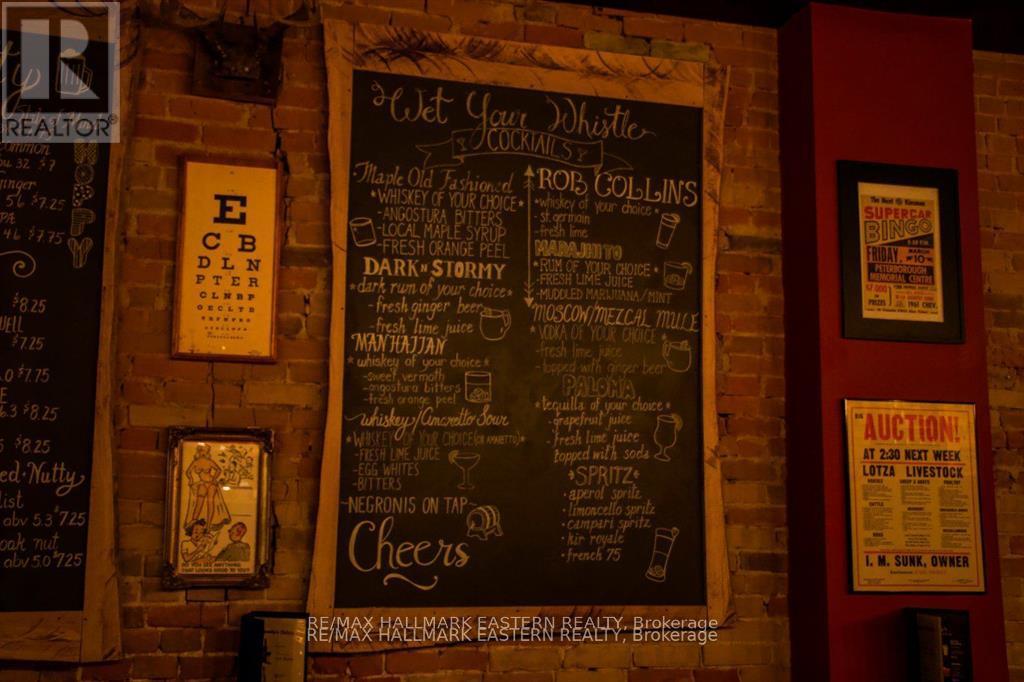 REALTOR®
ommon
ou 32 $7
Ginger
56 $7.25
PA
46 $7.75
$8.25
WELL
$7.25
.0 $7.75
6.3 $8.25
$8.25
ed · Nutty
list
abv 5.3 $725
oak nut
abv 5.0 $725
E
C B
D L N
P T E R
C L N B P
O E C L T B
DO YOU SEE ANYTHING
THAT LOOKS GOOD TO YOU?
Wet Your Whistle
COCKTAILS
·Maple Old Fashioned
*WHISKEY OF YOUR CHOICE*
-ANGOSTURA BITTERS
-LOCAL MAPLE SYRUP
-FRESH ORANGE PEEL
DARK N STORMY
*dark rum of your choice*
-fresh ginger beer
-fresh lime juice
MANHATTAN
*whiskey of your choice*
-sweet vermoth
-angostura bitters
-fresh orange peel
whiskey/Amaretto Sour
*WHISKEY OF YOUR CHOICE (OR AMARETTO)*
-FRESH LIME JUICE
-EGG WHITES
-BITTERS
-NEGRONIS ON TAP
Cheers
ROB COLLINS
*whiskey of your choice*
-st. germain
-fresh lime
MARAJHITO
*RUM OF YOUR CHOICE*
-FRESH LIME JUICE
-MUDDLED MARIJUANA/MINT
MOSCOW/MEZCAL MULE
*VODKA OF YOUR CHOICE*
-fresh lime juice
-topped with ginger beer
PALOMA
*tequilla of your choice*
-grapefruit juice
-fresh lime juice
topped with soda
*SPRITZ*
·aperol spritz
·limoncello spritz
·campari spritz
·kir royale
·french 75
SUPERCAR
BINGO
FRIDAY,
10
PETERBOROUGH
MEMORIAL CENTRE
$7,000
IN
PRIZES
1961 CHEV.
BIG
AUCTION!
AT 2:30 NEXT WEEK
LOTZA LIVESTOCK
I. M. SUNK, OWNER
RE/MAX HALLMARK EASTERN REALTY, Brokerage
RE/MAX HALLMARK EASTERN REALTY, Brokerage